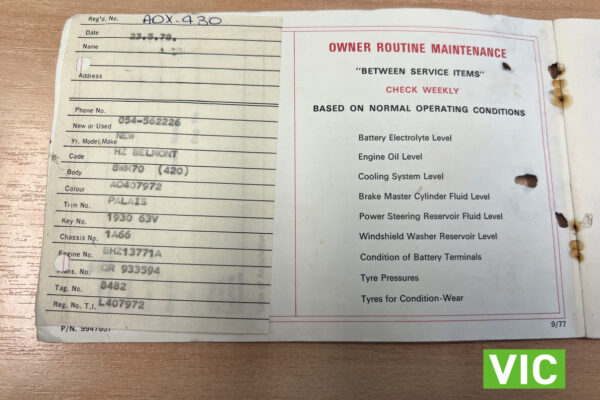 Reg'd. No. AOX·430
Date 23.5.78.
Name
Address
Phone No. 054-562226
New or Used NEW
Yr. Model, Make HZ BELMONT
Code 8WM70 (420)
Body AO407972
Colour PALAIS
Trin No. 1930 63V
Key No. 1A66
Chassis No. BHZ13771A
Engine No. CR 933594
Trans. No. 8482
Tag. No. L407972
Reg. No. T.I.
P/N. 9947857
OWNER ROUTINE MAINTENANCE
"BETWEEN SERVICE ITEMS"
CHECK WEEKLY
BASED ON NORMAL OPERATING CONDITIONS
Battery Electrolyte Level
Engine Oil Level
Cooling System Level
Brake Master Cylinder Fluid Level
Power Steering Reservoir Fluid Level
Windshield Washer Reservoir Level
Condition of Battery Terminals
Tyre Pressures
Tyres for Condition-Wear
9/77
VIC